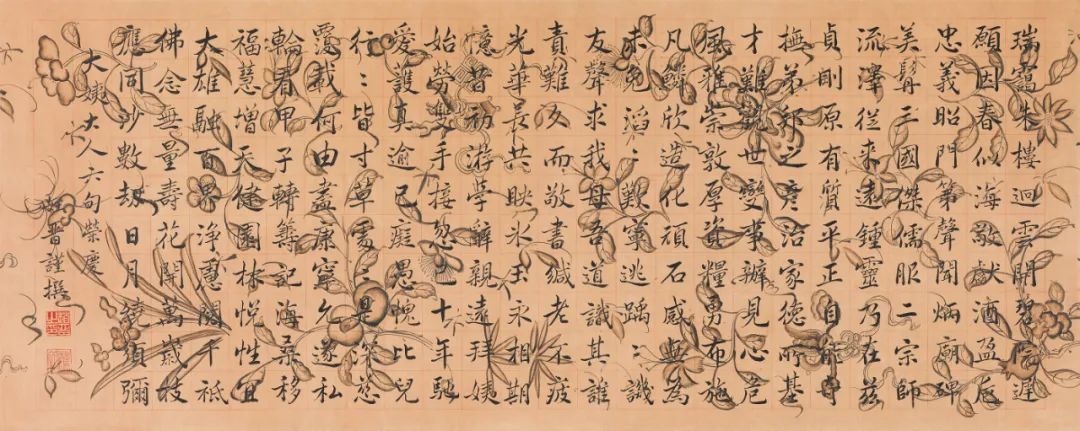 瑞靄朱樓迥雲開碧院遲
願因春似海敬獻酒盈卮
忠義昭門第聲聞炳廟碑
美髯三國傑儒服二宗師
流澤從來遠鍾靈乃在茲
貞則原有質平正自能
撫弟邦之彥治家德所基
才難世變事辦見心危
風雅崇敦厚資糧勇布施
凡鱗欣造化頑石感無為
未免滔〻歎寧逃踽〻譏
友聲求我母吾道識其誰
責難友而敬書緘老不疲
光華長共映冰玉永相期
憶昔初游學辭親遠拜姨
始勞雙手接忽〻十年馳
愛護真逾己癡愚愧比兒
行〻皆寸草處〻是深慈
覆載何由盡康寧久遂私
輪看甲子轉籌記海桑移
福慧增天健園林悅性宜
大雄融百界淨慮闊千祇
佛念無量壽花開萬歲枝
應同沙數劫日月繞須彌
大姨大人六旬榮慶
晋謹撰